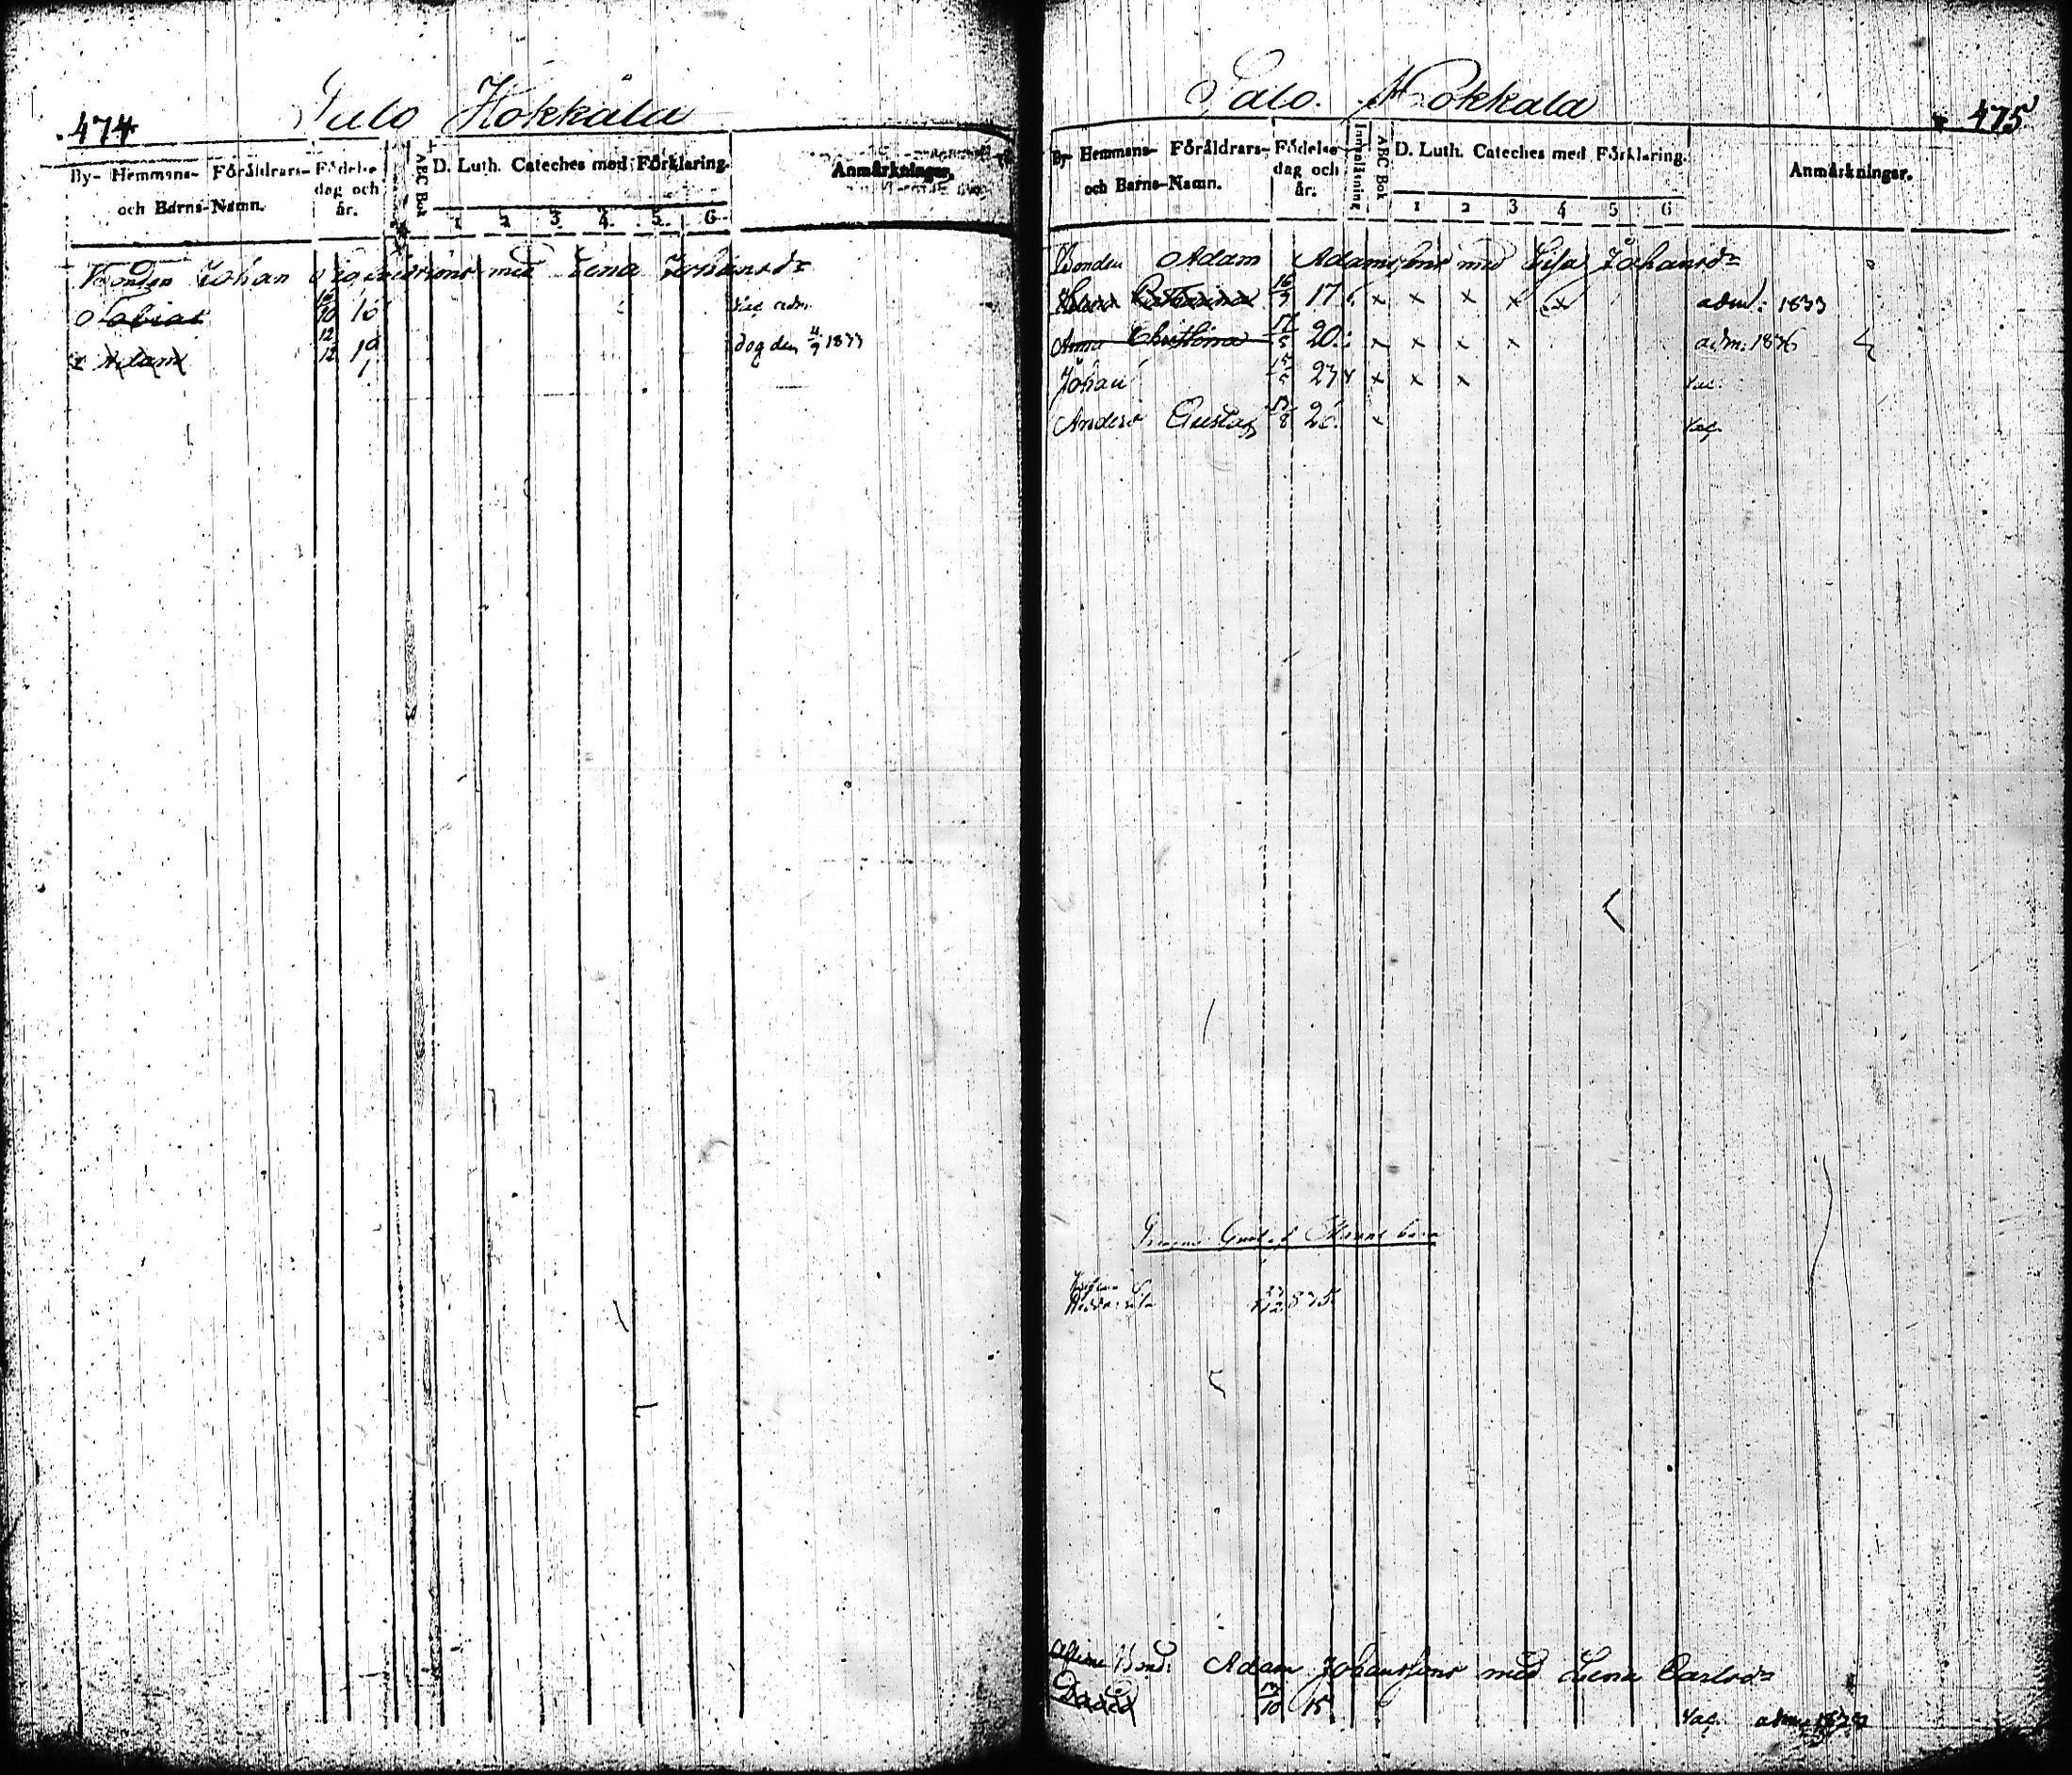 474
Salo Hokkala
By- Hemmans- Föräldrars- och Barns-Namn.
Födelse dag och år.
ABC Bok
D. Luth. Cateches med Förklaring.
1 2 3 4 5 6
Anmärkningar.
Bonden Johan med Lena Johansdr
Tobias 10 16 Vac adm.
Adam 12/12 19 dog den 4/9 1833
475
Salo. Hokkala
By- Hemmans- Föräldrars- och Barns-Namn.
Födelse dag och år.
Innanläsning
ABC Bok
D. Luth. Cateches med Förklaring.
1 2 3 4 5 6
Anmärkningar.
Bonden Adam Adamssons med Lisa Johansdr
Catharina 16/9 17 x x x x x adm: 1833
Anna Christina 17/5 20 x x x x adm: 1836
Johan 15/5 23 x x x Vac.
Anders Gustaf 13/8 26 Vac.
Gustaf barn
Hedda
Afledne Bond: Adam Johanssons med Lena Carlsdr
David 10 15 Vac. adm: